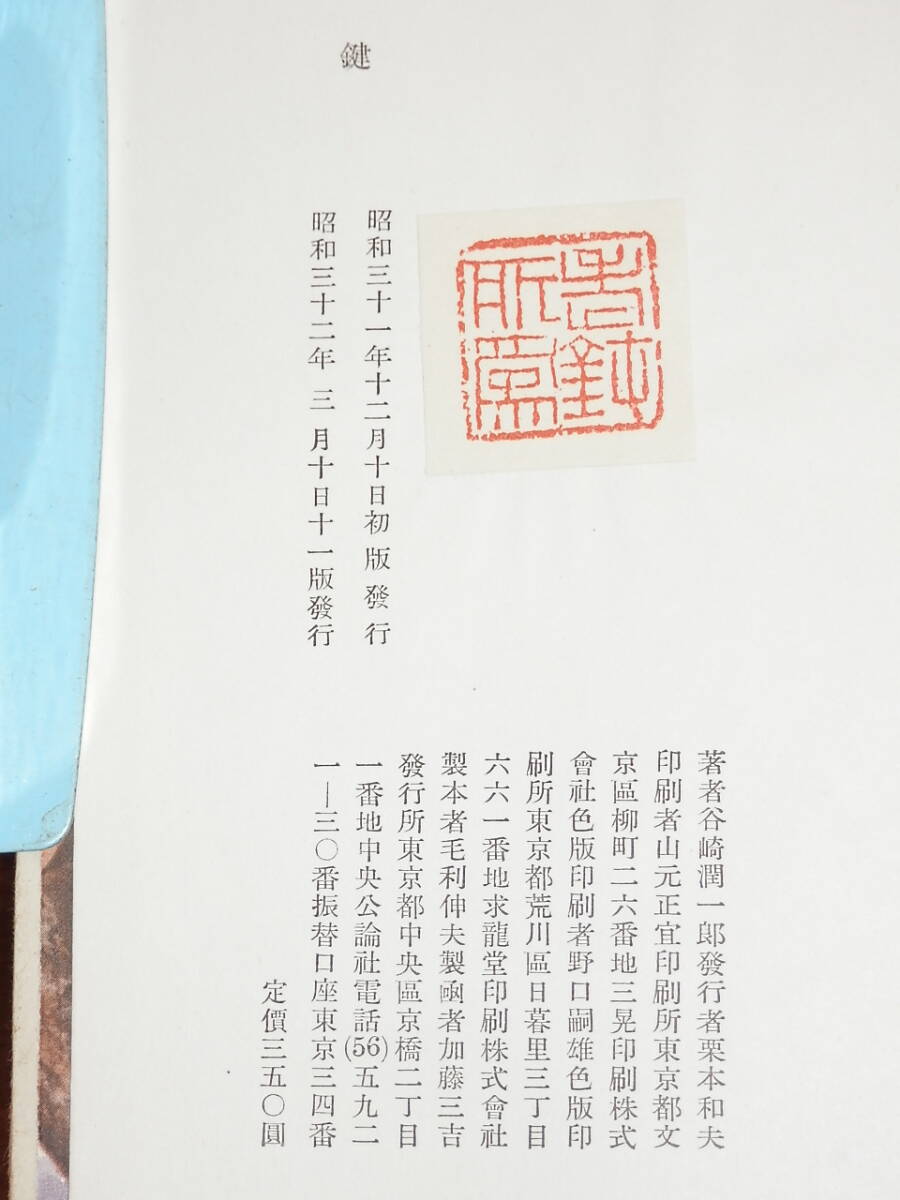 鍵
昭和三十一年十二月十日初版發行
昭和三十二年三月十日十一版發行
著者谷崎潤一郎發行者栗本和夫
印刷者山元正宜印刷所東京都文
京區柳町二六番地三晃印刷株式
會社色版印刷者野口嗣雄色版印
刷所東京都荒川區日暮里三丁目
六六一番地求龍堂印刷株式會社
製本者毛利伸夫製凾者加藤三吉
發行所東京都中央區京橋二丁目
一番地中央公論社電話(56)五九二
一―三〇番振替口座東京三四番
定價三五〇圓